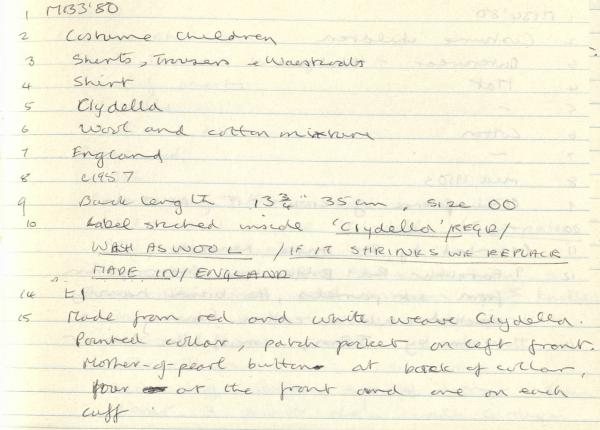 1 MB3'80
2 Costume Children
3 Shirts, Trousers & Waistcoats
4 Shirt
5 Clydella
6 Wool and cotton mixture
7 England
8 c1957
9 Back length 13 3/4" 35cm, size 00
10 Label stitched inside 'Clydella'/REGD/
WASH AS WOOL / IF IT SHRINKS WE REPLACE
MADE IN/ENGLAND
14 £1
15 Made from red and white weave Clydella.
Pointed collar, patch pocket on left front.
Mother-of-pearl button at back of collar,
four at the front and one on each
cuff.